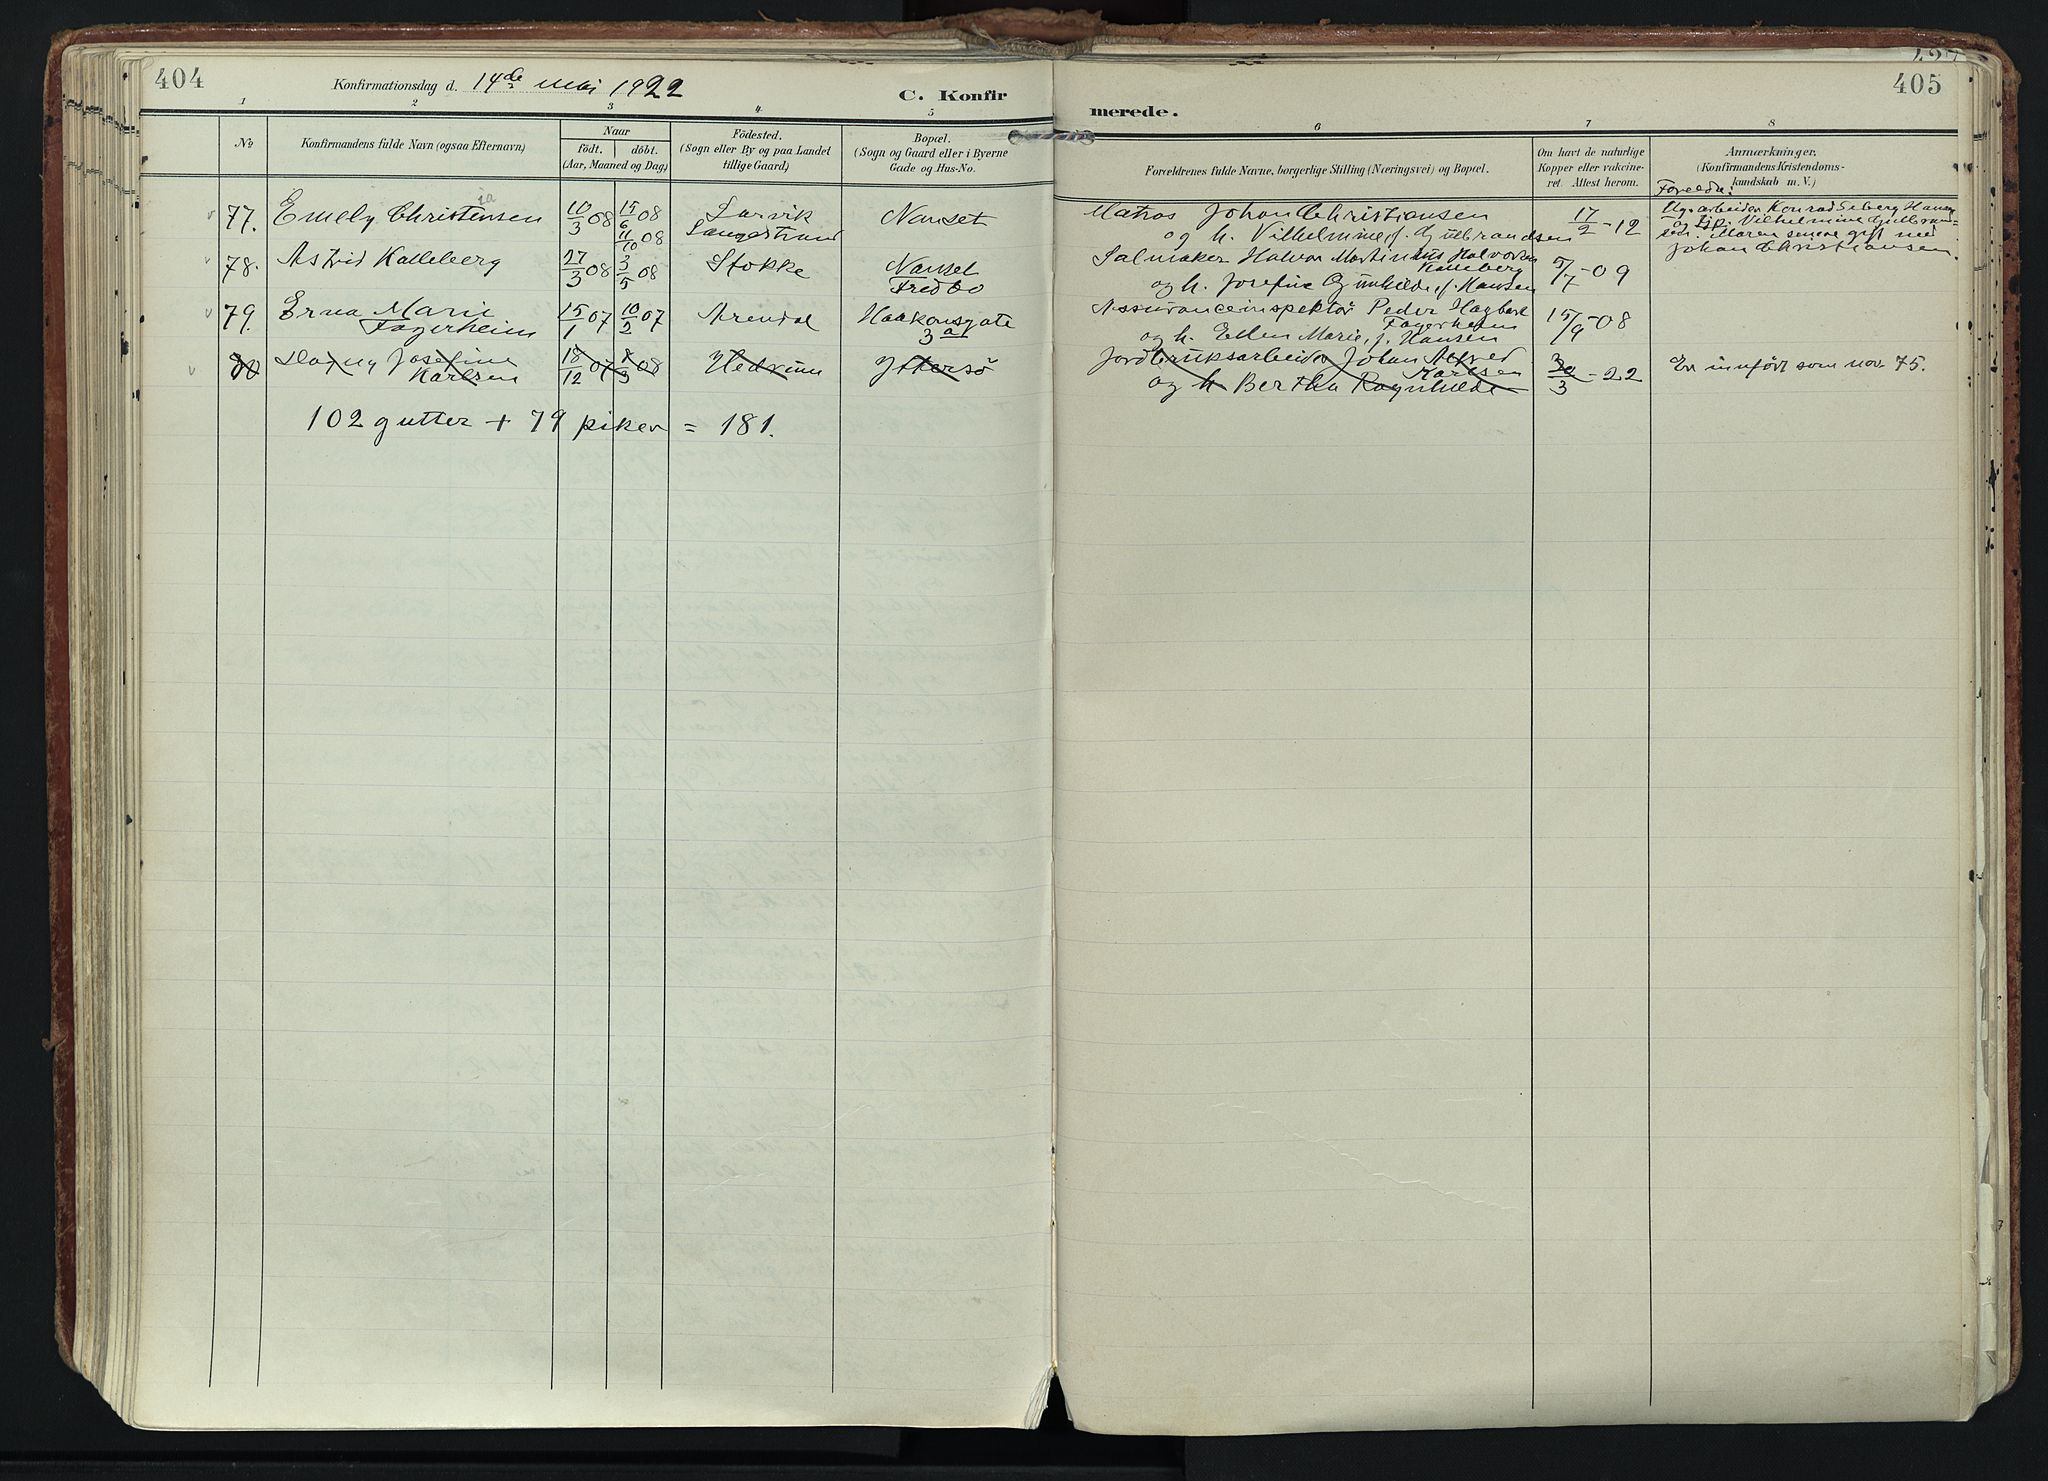 404
Konfirmationsdag d. 14de mai 1922
C. Konfir
merede.
405
1 2 3 4 5 6 7 8
No
Konfirmandens fulde Navn (ogsaa Efternavn)
Naar
födt. döbt.
(Aar, Maaned og Dag)
Födested.
(Sogn eller By og paa Landet
tillige Gaard)
Bopæl.
(Sogn og Gaard eller i Byerne
Gade og Hus-No.
Forældrenes fulde Navne, borgerlige Stilling (Næringsvei) og Bopæl.
Om havt de naturlige
Kopper eller vakcine-
ret. Attest herom.
Anmærkninger.
(Konfirmandens Kristendoms-
kundskab m. V.)
77. Emely Christensen 10/3 08 15/6 08 Larvik Nanset Matros Johan Christiansen 17/2 - 12
ia
11/10 08 Langestrand og h. Vilhelmine f. Gulbrandsen
Forældre:
Ug. arbeider Konrad
og Vilhelmine Gulbrand-
sen. Moren senere gift med
Johan Christiansen
78. Astrid Kalleberg 27/3 08 3/5 08 Stokke Nanset Salmaker Halvor Martinius Halvorsen 5/7 - 09
Fredbo Kalleberg
og h. Josefine Gunhilde, f. Hansen
79. Erna Marie 15/1 07 10/2 07 Arendal Haakonsgate Assuranceinspektør Peder Hagbart 15/9 - 08
Fagerheim 3 a Fagerheim
og h. Ellen Marie, f. Hansen
80 Dagny Josefine 18/12 07 8/3 08 Hedrum Ytersö Jordbruksarbeider Johan Alfred 30/3 - 22 Er innført som nov. 75.
Karlsen Karlsen
og h Bertha Ragnhilde
102 gutter + 79 piker = 181.